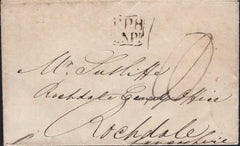 Mr. Sutcliffe
Rochdale Canal Office
Rochdale
Lancashire